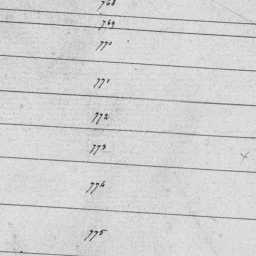 768
769
770
771
772
773
774
775